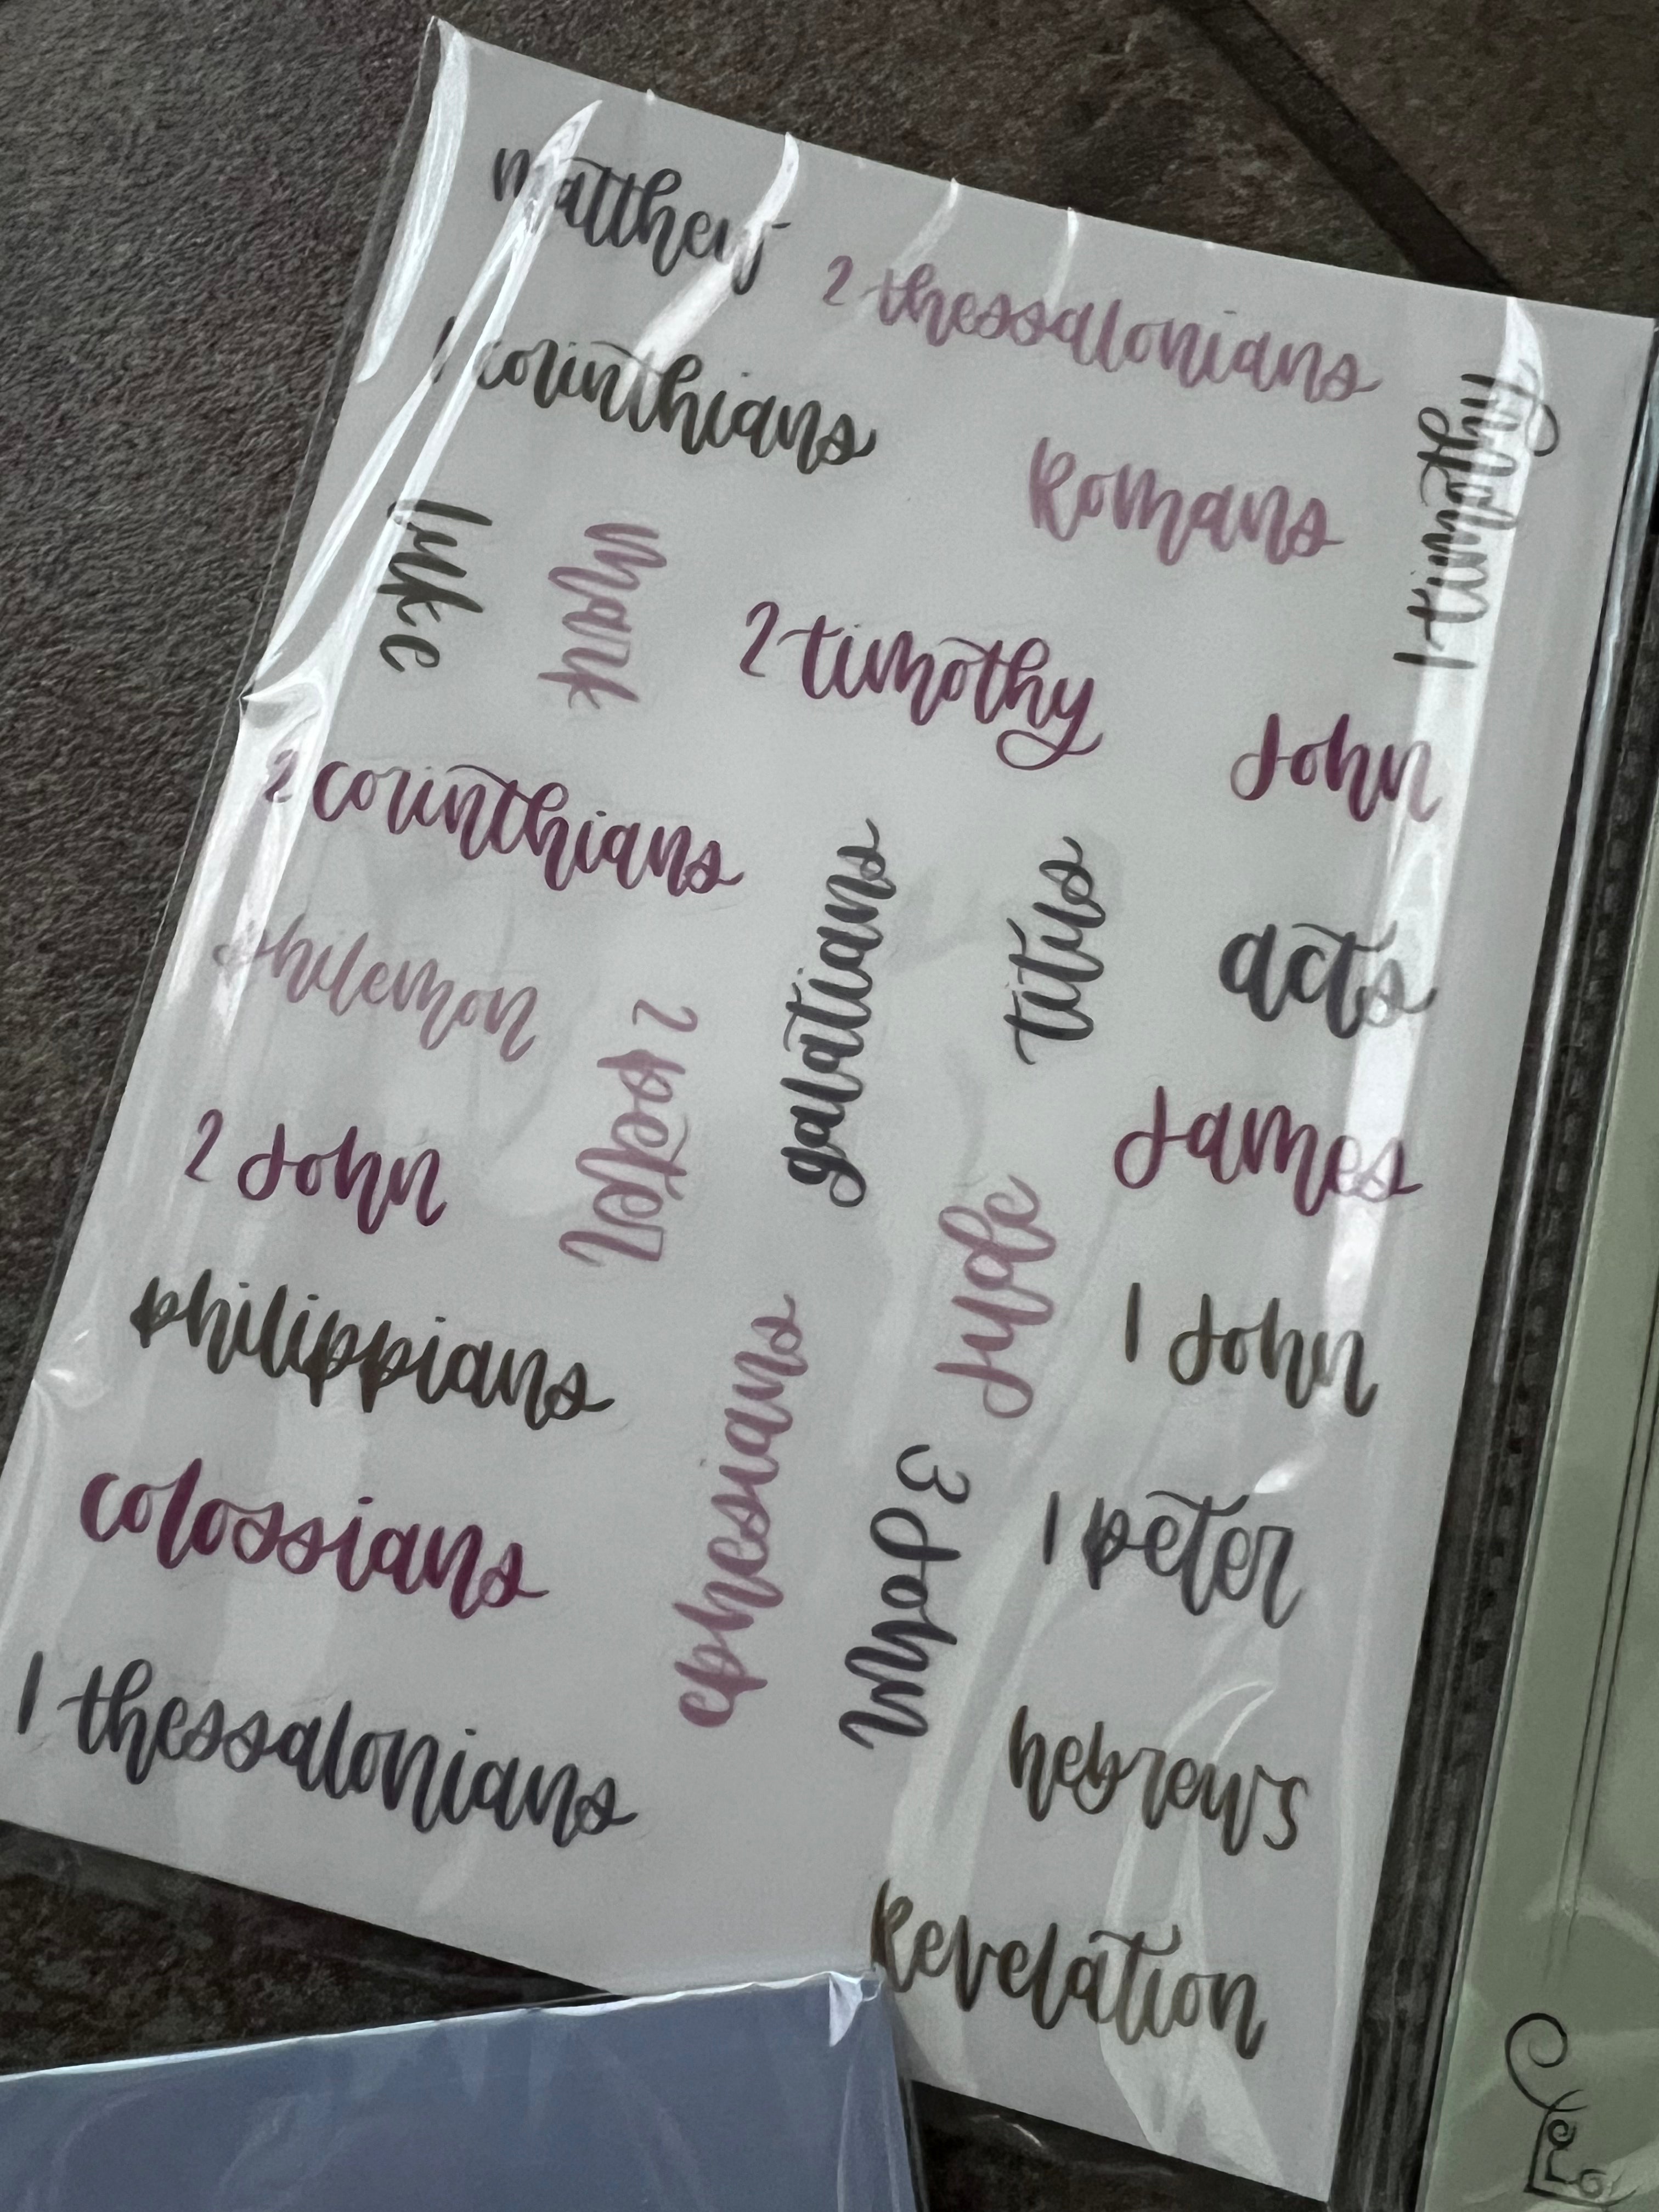 matthew
2 thessalonians
1 corinthians
Romans
1 timothy
luke
mark
2 timothy
John
2 corinthians
galatians
titus
acts
philemon
2 peter
James
2 John
Jude
philippians
1 John
ephesians
3 John
colossians
1 peter
1 thessalonians
hebrews
Revelation